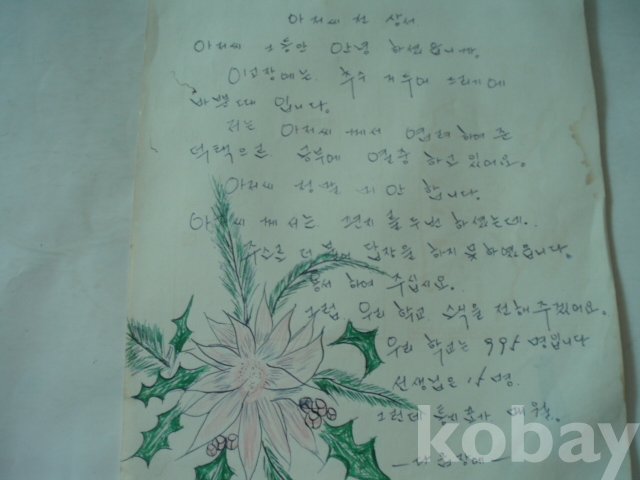 아저씨 전 상서
아저씨 그동안 안녕 하셨읍니까.
이고장에는 추수 거두어 드리기에
바쁜때 입니다.
저는 아저씨 께서 염려 하여 준
덕택으로 공부에 열중 하고 있어요.
아저씨 정말 미안 합니다.
아저씨 께서는 편지를 두번 하셨는데.
주소를 더 답장을 하지 못 하였읍니다.
용서 하여 주십시요.
그럼 우리 학교 소식을 전해 주겠어요.
우리 학교는 995 명입니다
선생님은 15 명.
그런데
kobay